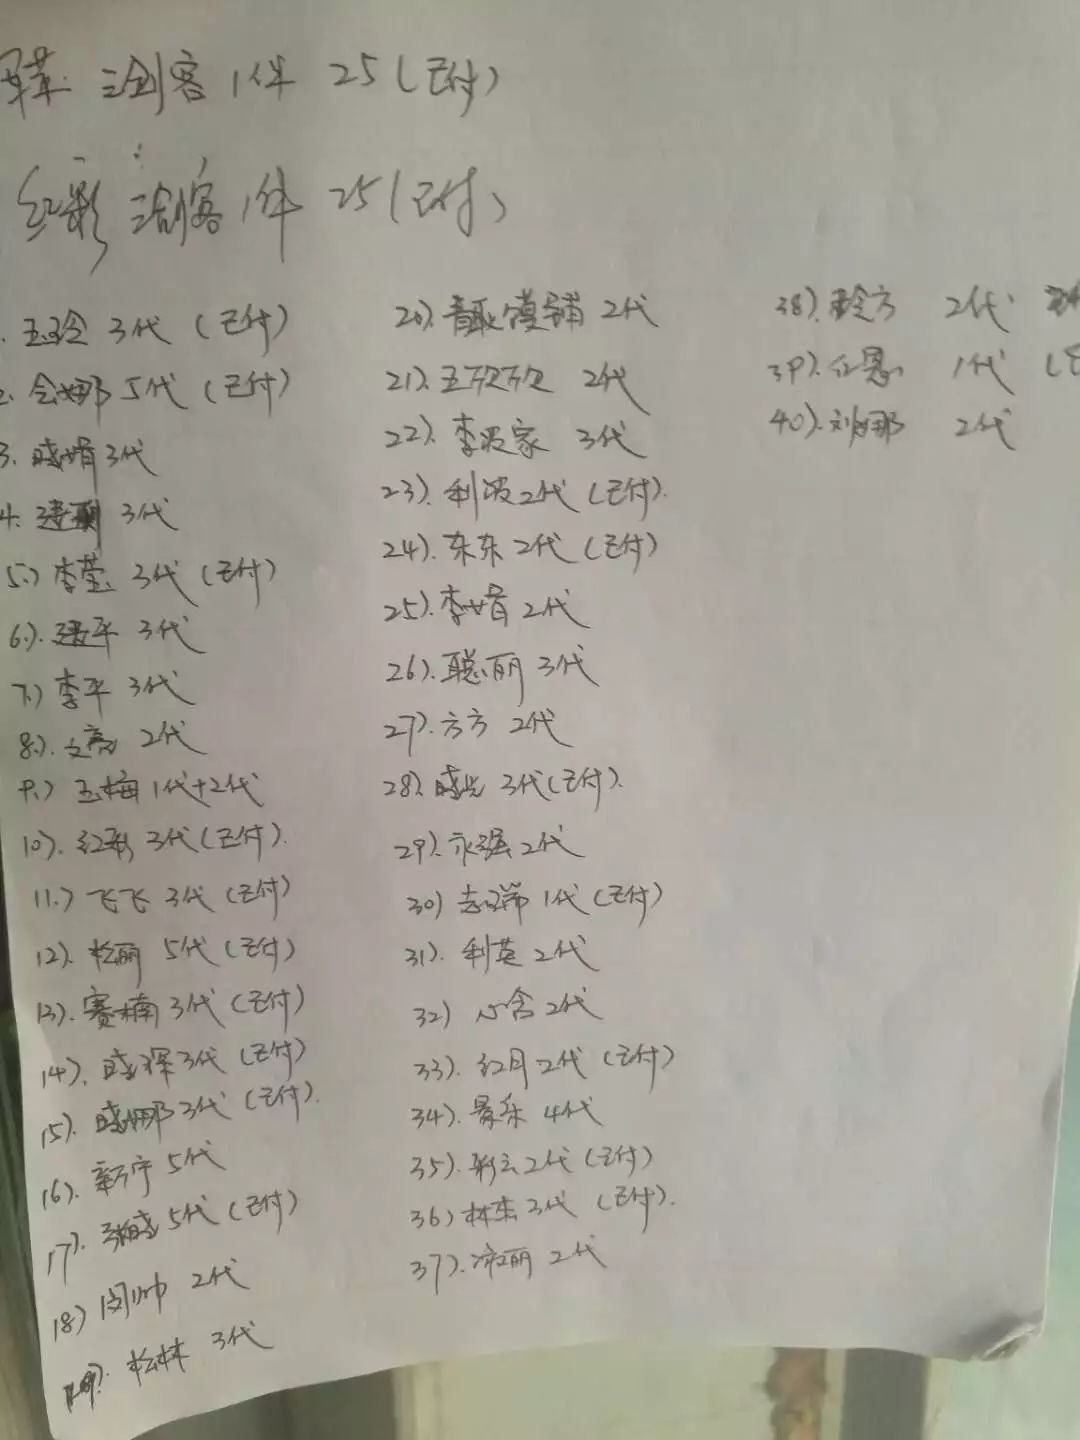 三剑客1件 25(已付)
红彩 三剑客1件 25(已付)
玉玲 3代 (已付)
会娜 5代 (已付)
3. 晓娟 3代
4. 3代
5.) 李莹 3代 (已付)
6.). 建平 3代
7.) 李平 3代
8.). 文亮 2代
9.) 玉梅 1代+2代
10). 红彩 3代(已付).
11.) 飞飞 3代 (已付)
12). 松丽 5代 (已付)
13). 赛楠 3代 (已付)
14). 晓琛 3代 (已付)
15). 晓娜 3代 (已付).
16). 新宁 5代
17). 5代 (已付)
18) 闫帅 2代
19). 松林 3代
20). 馍铺 2代
21). 王欣欣 2代
22). 李波家 3代
23). 利波 2代 (已付).
24). 东东 2代 (已付)
25). 李娟 2代
26). 聪丽 3代
27). 方方 2代
28). 晓光 3代(已付).
29). 永强 2代
30) 志瑞 1代 (已付)
31). 利英 2代
32) 心含 2代
33). 红月 2代 (已付)
34). 景乐 4代
35). 彩云 2代 (已付)
36) 林杰 3代 (已付).
37). 丽 2代
38). 方 2代
39). 1代
40). 刘娜 2代